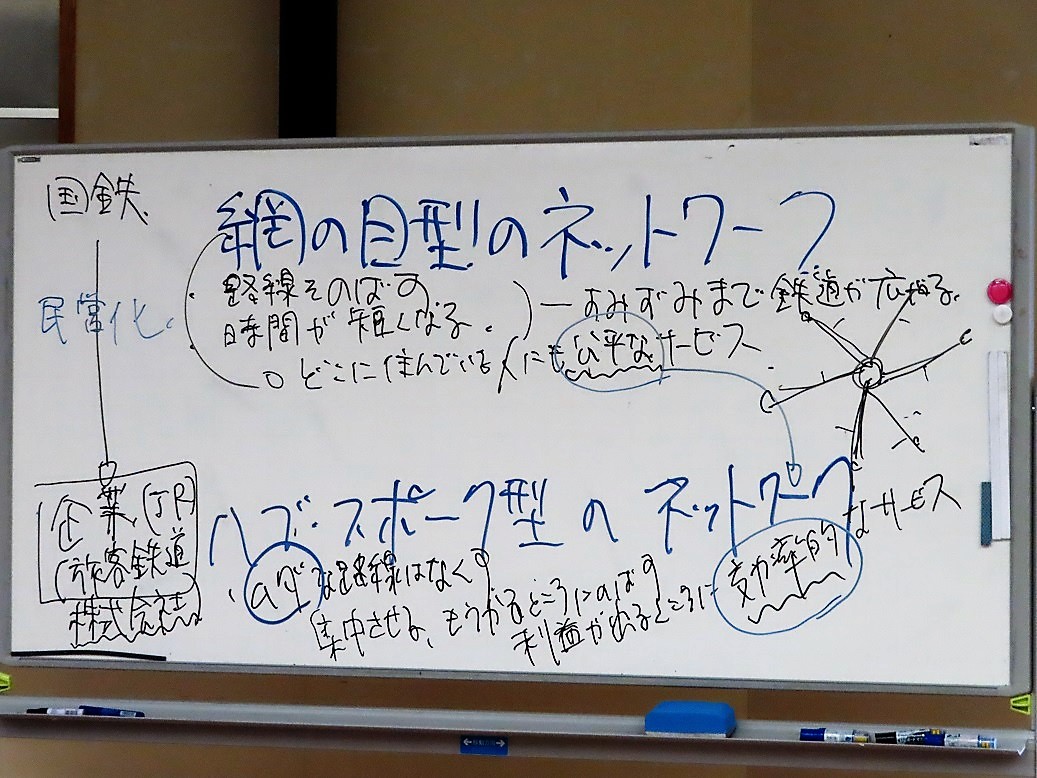 国鉄
民営化
企業 (JR)
(旅客鉄道
株式会社)
網の目型のネットワーク
路線そのばす
時間が短くなる。
すみずみまで鉄道が広がる。
○どこに住んでいる人にも公平なサービス
ハブ・スポーク型のネットワーク
・ムダな路線はなくす
集中させる、もうかるところにのばす
利益が出るところに
効率的なサービス